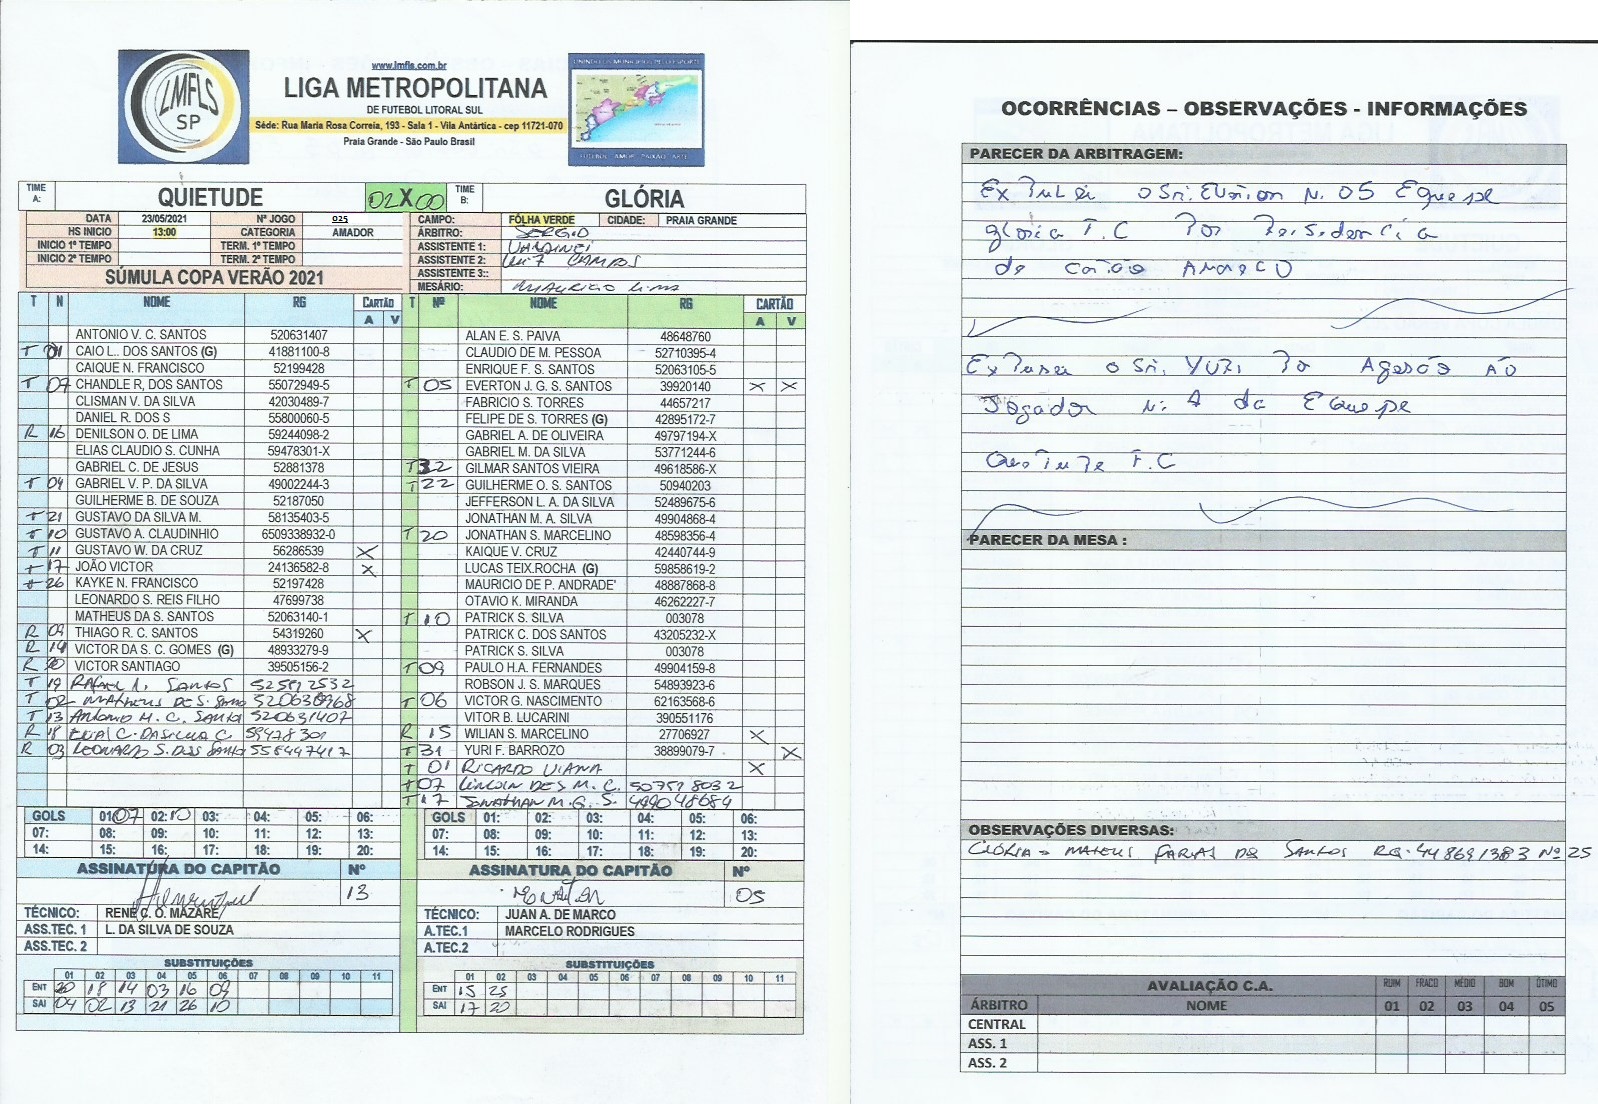 www.lmfls.com.br
LMFLS
SP
LIGA METROPOLITANA
DE FUTEBOL LITORAL SUL
Séde: Rua Maria Rosa Correia, 193 - Sala 1 - Vila Antártica - cep 11721-070
Praia Grande - São Paulo Brasil
UNINDO OS MUNICIPIOS PELO ESPORTE
FUTEBOL AMOR PAIXÃO ARTE
TIME A: QUIETUDE 02 X 00 TIME B: GLÓRIA
DATA 23/05/2021 Nº JOGO 025 CAMPO: FÔLHA VERDE CIDADE: PRAIA GRANDE
HS INICIO 13:00 CATEGORIA AMADOR ÁRBITRO: SERGIO
INICIO 1º TEMPO TERM. 1º TEMPO ASSISTENTE 1: VARDINEI
INICIO 2º TEMPO TERM. 2º TEMPO ASSISTENTE 2: LUIZ CAMPOS
SÚMULA COPA VERÃO 2021 ASSISTENTE 3::
MESÁRIO: MAURICIO LIMA
T N NOME RG CARTÃO A V
ANTONIO V. C. SANTOS 520631407
T 01 CAIO L.. DOS SANTOS (G) 41881100-8
CAIQUE N. FRANCISCO 52199428
T 07 CHANDLE R, DOS SANTOS 55072949-5
CLISMAN V. DA SILVA 42030489-7
DANIEL R. DOS S 55800060-5
R 16 DENILSON O. DE LIMA 59244098-2
ELIAS CLAUDIO S. CUNHA 59478301-X
GABRIEL C. DE JESUS 52881378
T 04 GABRIEL V. P. DA SILVA 49002244-3
GUILHERME B. DE SOUZA 52187050
T 21 GUSTAVO DA SILVA M. 58135403-5
T 10 GUSTAVO A. CLAUDINHIO 6509338932-0
T 11 GUSTAVO W. DA CRUZ 56286539 X
T 17 JOÃO VICTOR 24136582-8 X
T 26 KAYKE N. FRANCISCO 52197428
LEONARDO S. REIS FILHO 47699738
MATHEUS DA S. SANTOS 52063140-1
R 09 THIAGO R. C. SANTOS 54319260 X
R 14 VICTOR DA S. C. GOMES (G) 48933279-9
R 20 VICTOR SANTIAGO 39505156-2
T 19 RAFAEL A. SANTOS 525972532
T 02 MATHEUS DE S.
T 13 ANTONIO M. C. SANTOS 520631407
R 18 ELIAS C. DA SILVA C. 59478301
R 03 LEONARDO S. DOS SANTOS 558447417
T Nº NOME RG CARTÃO A V
ALAN E. S. PAIVA 48648760
CLAUDIO DE M. PESSOA 52710395-4
ENRIQUE F. S. SANTOS 52063105-5
T 05 EVERTON J. G. S. SANTOS 39920140 X X
FABRICIO S. TORRES 44657217
FELIPE DE S. TORRES (G) 42895172-7
GABRIEL A. DE OLIVEIRA 49797194-X
GABRIEL M. DA SILVA 53771244-6
T 32 GILMAR SANTOS VIEIRA 49618586-X
T 22 GUILHERME O. S. SANTOS 50940203
JEFFERSON L. A. DA SILVA 52489675-6
JONATHAN M. A. SILVA 49904868-4
T 20 JONATHAN S. MARCELINO 48598356-4
KAIQUE V. CRUZ 42440744-9
LUCAS TEIX.ROCHA (G) 59858619-2
MAURICIO DE P. ANDRADE' 48887868-8
OTAVIO K. MIRANDA 46262227-7
T 10 PATRICK S. SILVA 003078
PATRICK C. DOS SANTOS 43205232-X
PATRICK S. SILVA 003078
T 09 PAULO H.A. FERNANDES 49904159-8
ROBSON J. S. MARQUES 54893923-6
T 06 VICTOR G. NASCIMENTO 62163568-6
VITOR B. LUCARINI 390551176
R 15 WILIAN S. MARCELINO 27706927 X
T 31 YURI F. BARROZO 38899079-7 X
T 01 RICARDO VIANA X
T 07 LINCOLN DE S M. C. 507578032
T 17 JONATHAN M. G. S. 499048684
GOLS 01: 07 02: 10 03: 04: 05: 06:
07: 08: 09: 10: 11: 12: 13:
14: 15: 16: 17: 18: 19: 20:
GOLS 01: 02: 03: 04: 05: 06:
07: 08: 09: 10: 11: 12: 13:
14: 15: 16: 17: 18: 19: 20:
ASSINATURA DO CAPITÃO Nº
13
ASSINATURA DO CAPITÃO Nº
05
TÉCNICO: RENE C. O. MAZARE
ASS.TEC. 1 L. DA SILVA DE SOUZA
ASS.TEC. 2
TÉCNICO: JUAN A. DE MARCO
A.TEC.1 MARCELO RODRIGUES
A.TEC.2
SUBSTITUIÇÕES
01 02 03 04 05 06 07 08 09 10 11
ENT 20 18 14 03 16 09
SAI 04 02 13 21 26 10
SUBSTITUIÇÕES
01 02 03 04 05 06 07 08 09 10 11
ENT 15 25
SAI 17 20
OCORRÊNCIAS – OBSERVAÇÕES - INFORMAÇÕES
PARECER DA ARBITRAGEM:
Expulsei o Sr. Everton N. 05 Equipe
gloria F.C Por Reisidencia
de Cartão Amarelo
Expulsei o Sr. YURI Por Agesão Ao
Jogador N. 7 da Equipe
Quetude F.C
PARECER DA MESA :
OBSERVAÇÕES DIVERSAS:
GLÓRIA - MATEUS FARIAS DOS SANTOS RG. 448691383 Nº 25
AVALIAÇÃO C.A. RUIM FRACO MÉDIO BOM ÓTIMO
ÁRBITRO NOME 01 02 03 04 05
CENTRAL
ASS. 1
ASS. 2